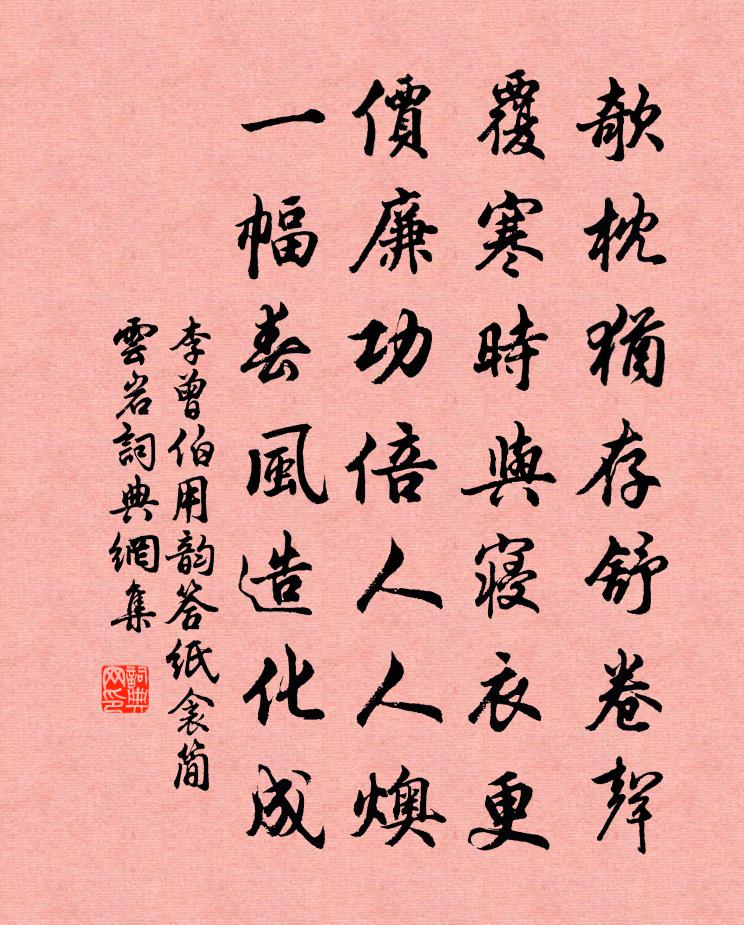 欹枕猶存舒卷聲
覆寒時與寢衣更
價廉功倍人人燠
一幅春風造化成
李曾伯用韵答紙衾簡
雲岩詞典網集
詞典網印